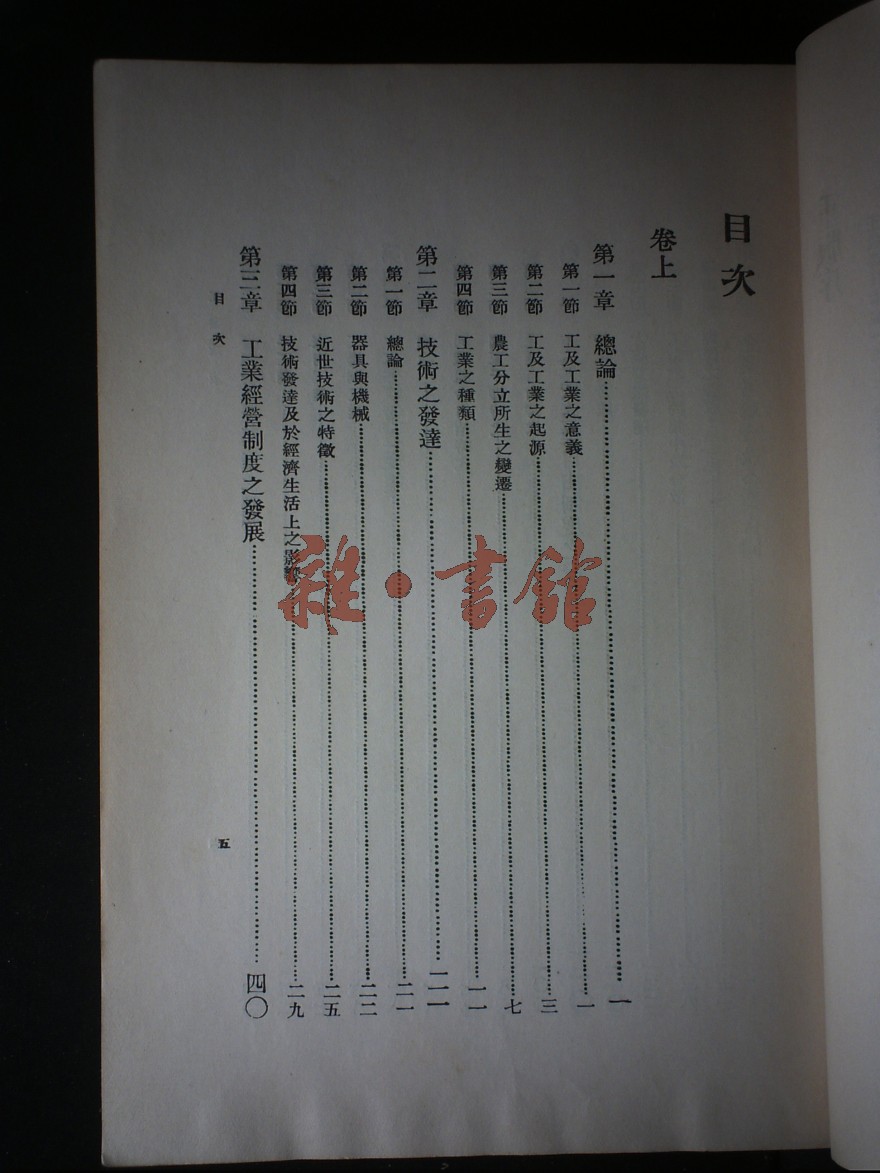 目次
卷上
第一章 總論……一
第一節 工及工業之意義……一
第二節 工及工業之起源……三
第三節 農工分立所生之變遷……七
第四節 工業之種類……一一
第二章 技術之發達……二一
第一節 總論……二一
第二節 器具與機械……二二
第三節 近世技術之特徵……二五
第四節 技術發達及於經濟生活上之影響……二九
第三章 工業經營制度之發展……四〇
目次 五
雜·書館